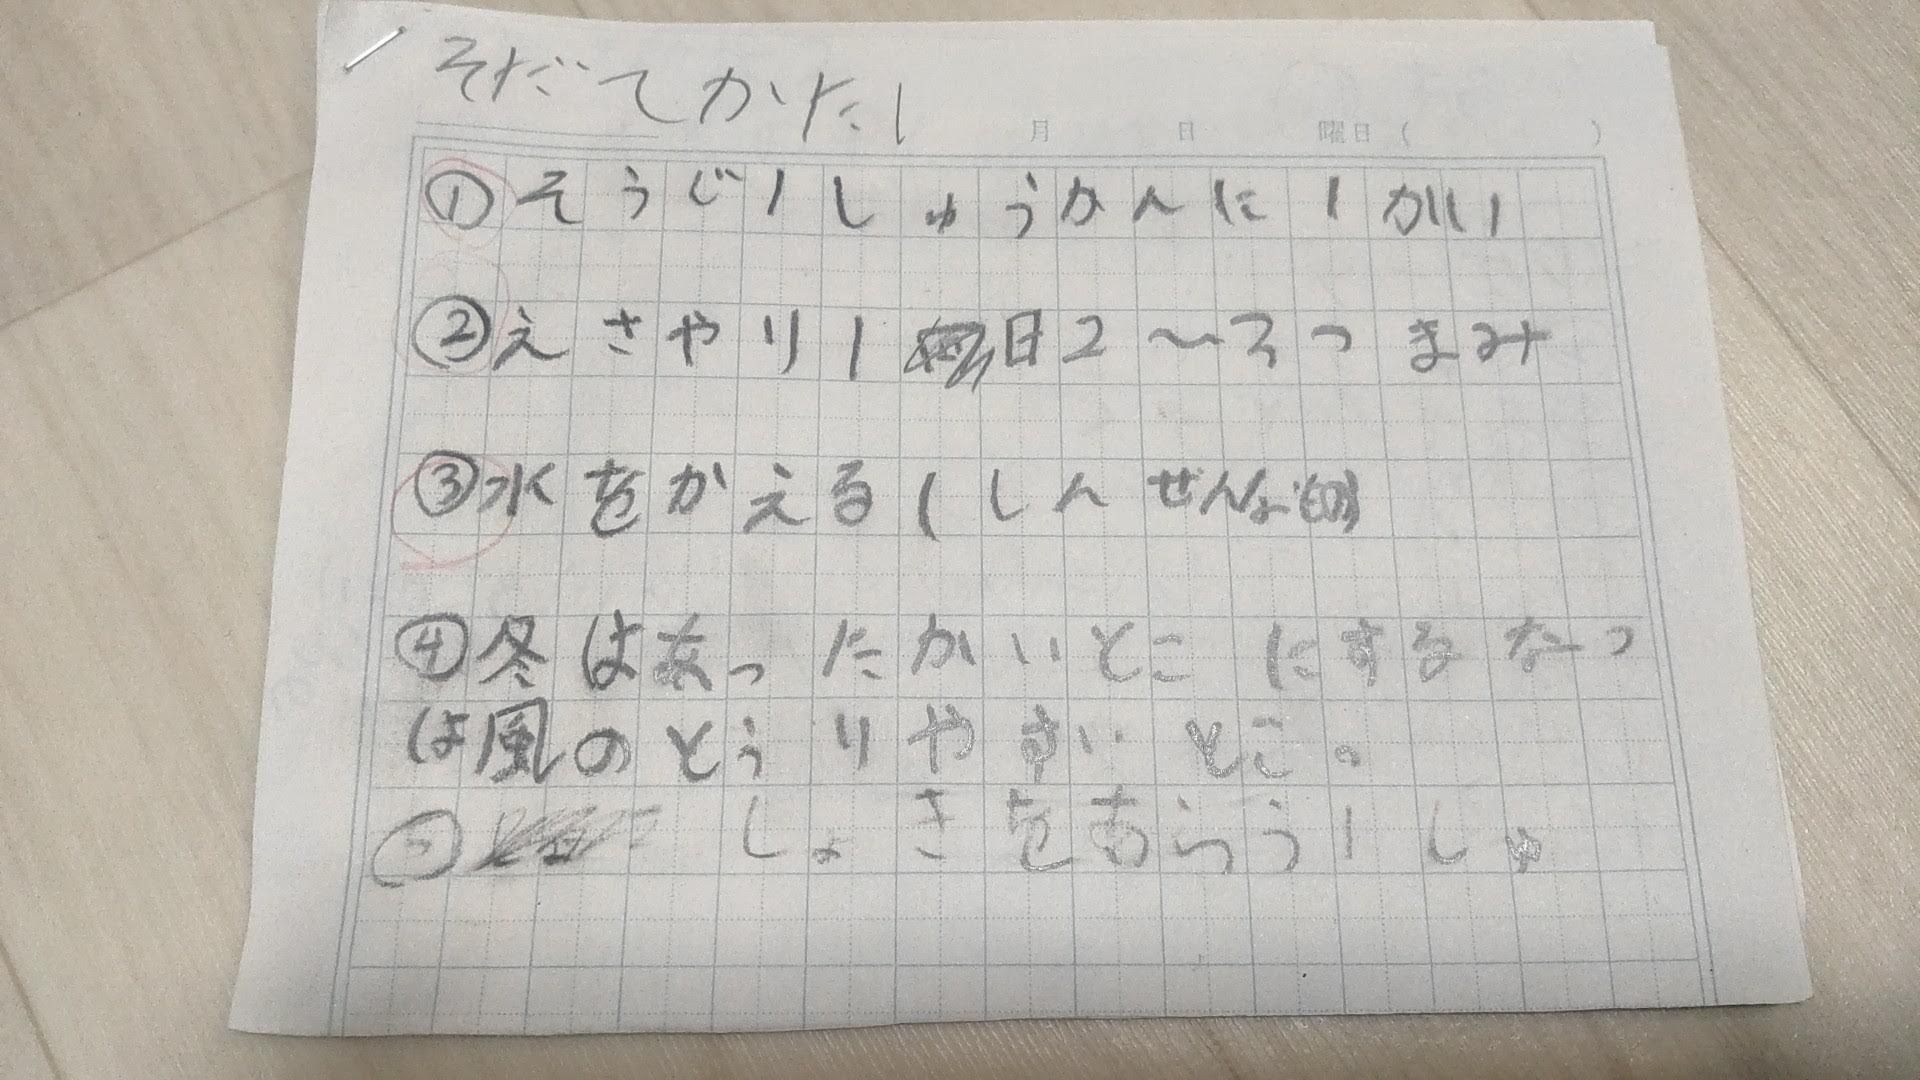 そだてかた1
月 日 曜日( )
①そうじ1しゅうかんに1かい
②えさやり1 日2〜3つまみ
③水をかえる(しんせんな
④冬はあったかいとこにするなつ
は風のとうりやすいとこ。
⑤ しょきをもらう1しゅ